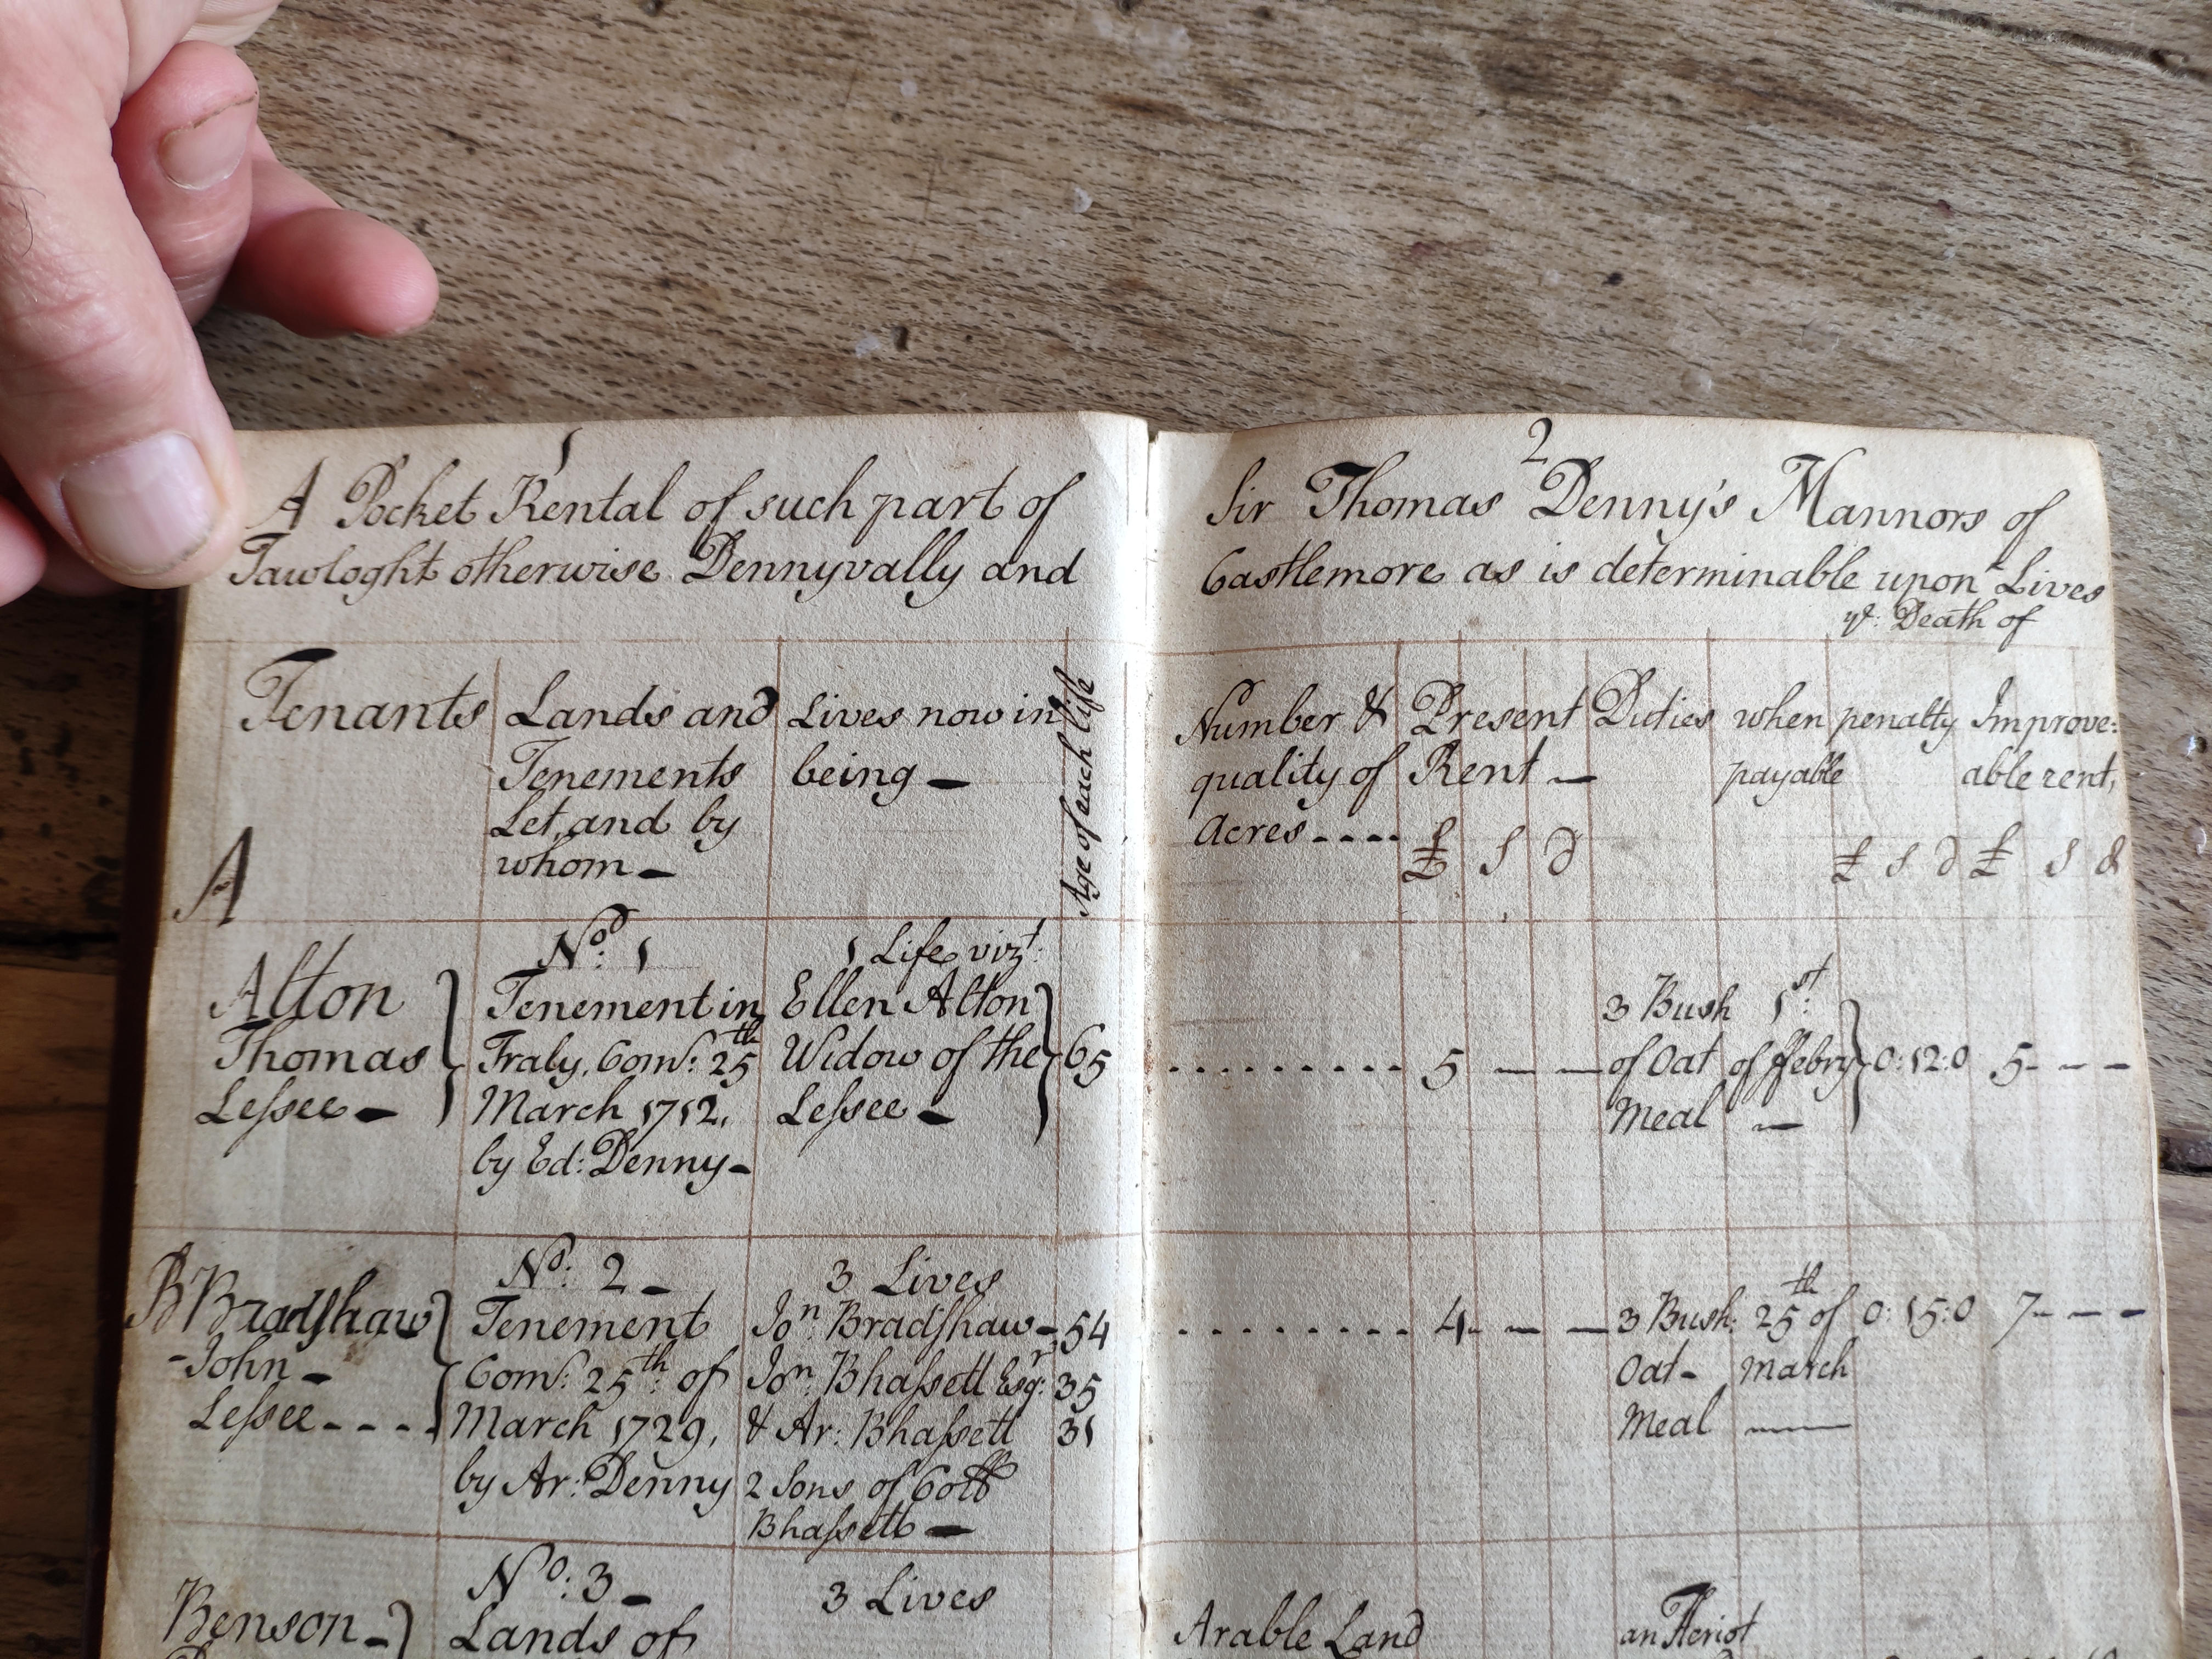 1
A Pocket Rental of such part of
Tawloght otherwise Dennyvally and
Tenants
Lands and
Tenements
Let, and by
whom -
Lives now in
being -
Age of each life
A
Alton
Thomas
Lessee -
No: 1
Tenement in
Traly, Com: 25th
March 1712,
by Ed: Denny -
1 Life vizt:
Ellen Alton
Widow of the
Lessee -
65
B Bradshaw
- John -
Lessee - - - -
No: 2 -
Tenement
Com: 25th: of
March 1729,
by Ar: Denny
3 Lives
Jon: Bradshaw - 54
Jon: Bhassett Esqr: 35
& Ar: Bhassett 31
2 Sons of Coll
Bhassett -
Benson -
No: 3 -
Lands of
3 Lives
2
Sir Thomas Denny's Mannors of
Castlemore as is determinable upon Lives
ye: Death of
Number &
quality of
Acres - - - -
Present
Rent -
£ s d
Duties
when
payable
penalty
£ s d
Improve:
able rent,
£ s d
5 - -
3 Bush
of Oat
Meal
1st:
of Febry
-
0:12:0
5 - - -
4 - - -
3 Bush:
Oat -
Meal
25th of
March
-
0:15:0
7 - - -
Arable Land
an Heriot